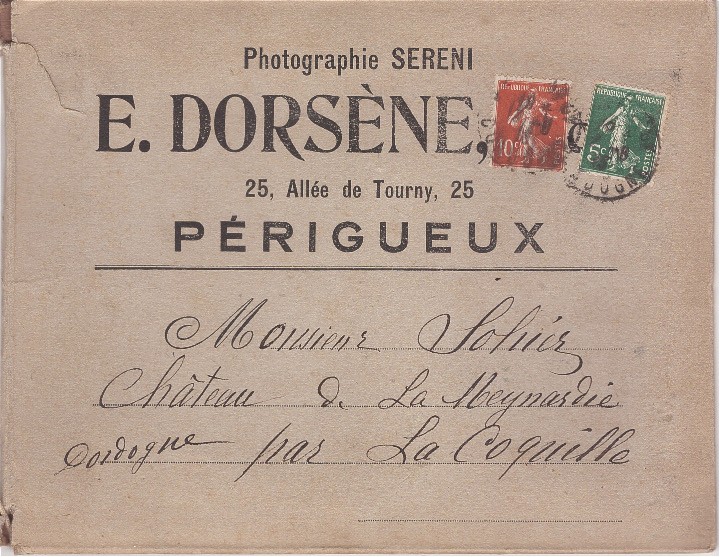 Photographie SERENI
E. DORSÈNE,
RÉPUBLIQUE FRANÇAISE
10c
POSTES
RÉPUBLIQUE FRANÇAISE
5c
POSTES
25, Allée de Tourny, 25
PÉRIGUEUX
Monsieur Sohier
Château d. La Meynardie
Dordogne par La Coquille